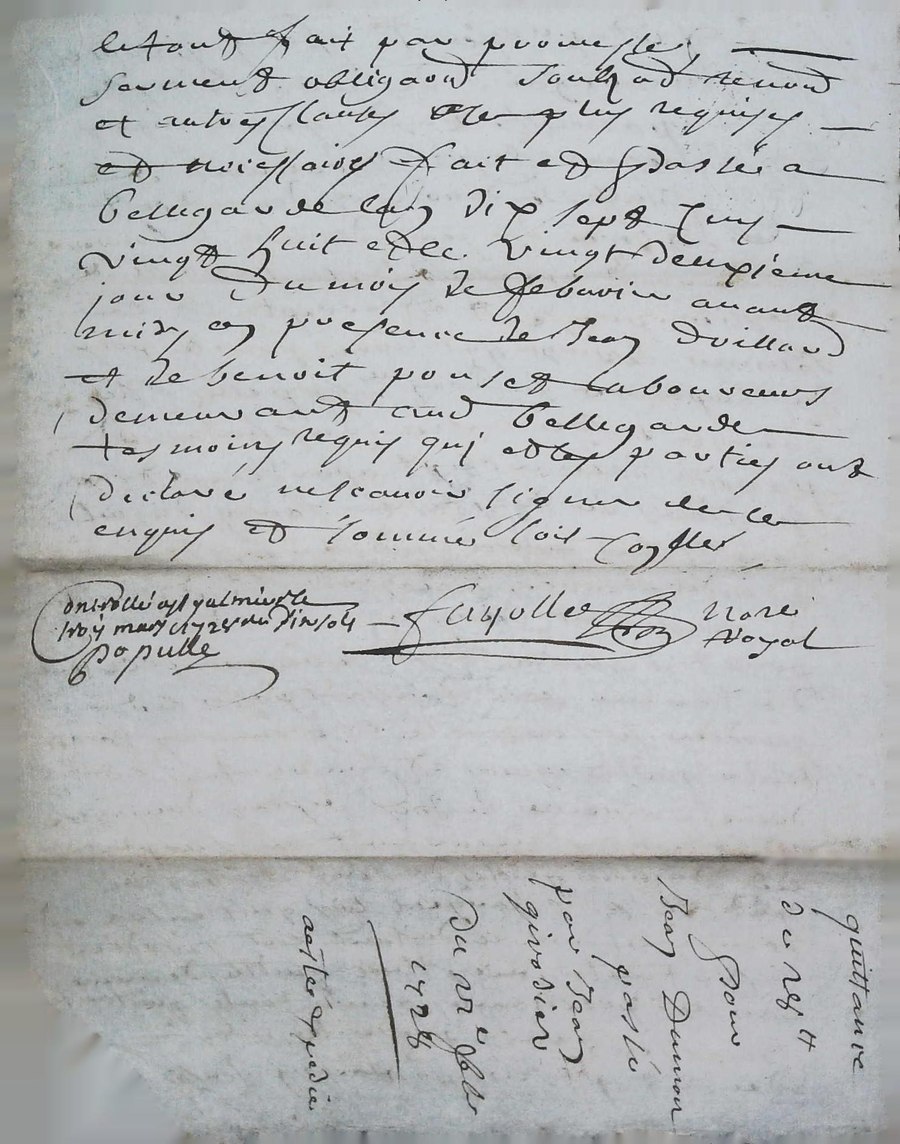 le tout fait par promesse
serment obligaõn soubz aõn renon̄
et autres clauses de plus requises
et necessaires fait et passé a
bellegarde l'an dix sept cens
vingt huit et le vingt deuxieme
jour du mois de febvrier avant
midy en presence de Jean Drillard
et de benoit pouset laboureurs
demeurant aud bellegarde
tesmoins requis qui et les parties ont
declaré ne scavoir signer de ce
enquis et sommé
controllé a st galmier le
trois mars 1728 six sols
populle
fayolle
No.re
Royal
quittance
de 28 tt
pour
Jean Dumon
passé
par Jean
girodier
Du 22e feb
1728